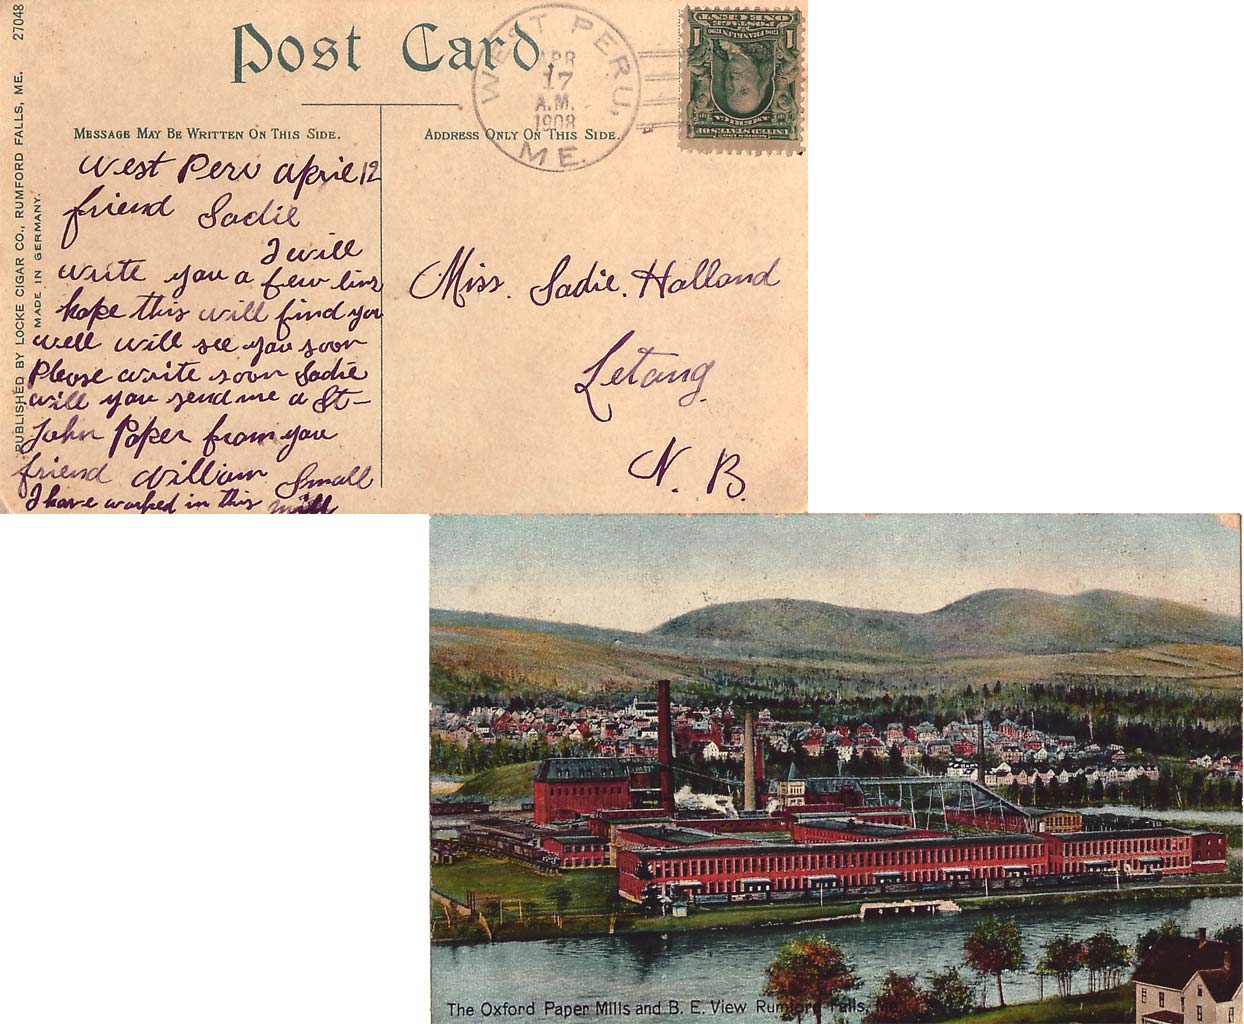 27048
PUBLISHED BY LOCKE CIGAR CO., RUMFORD FALLS, ME.
MADE IN GERMANY.
Post Card
WEST PERU, ME.
APR
17
A.M.
1908
1 POSTAGE ONE CENT 1
1706 FRANKLIN 1790
UNITED STATES OF
SERIES 1902
MESSAGE MAY BE WRITTEN ON THIS SIDE.
ADDRESS ONLY ON THIS SIDE.
West Peru april 12
friend Sadie
I will
write you a few lins
hope this will find you
well will see you soon
Please write soon Sadie
will you send me a St-
John Paper from you
friend William Small
I have worked in this mill
Miss. Sadie. Halland
Letang.
N. B.
The Oxford Paper Mills and B. E. View Rumford Falls, Me.